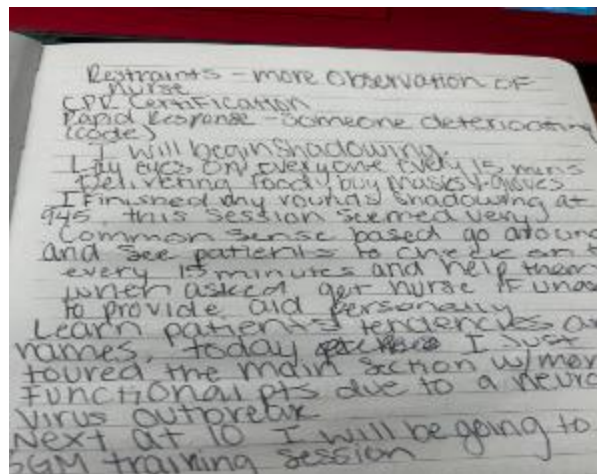 Restraints - more observation of
nurse
CPR Certification
Rapid Response - Someone deteriorating
(code)
I will begin shadowing.
Lay eyes on everyone every 15 mins
Delivering food, buy masks & gloves
I finished my rounds shadowing at
945, this session seemed very
Common sense based go around
and see patients to check on
every 15 minutes and help them
when asked get nurse if
to provide aid personally
Learn patients tendencies
names, today I just
toured the main section w/
functional pts due to a
virus outbreak
Next at 10 I will be going to
SGM training session